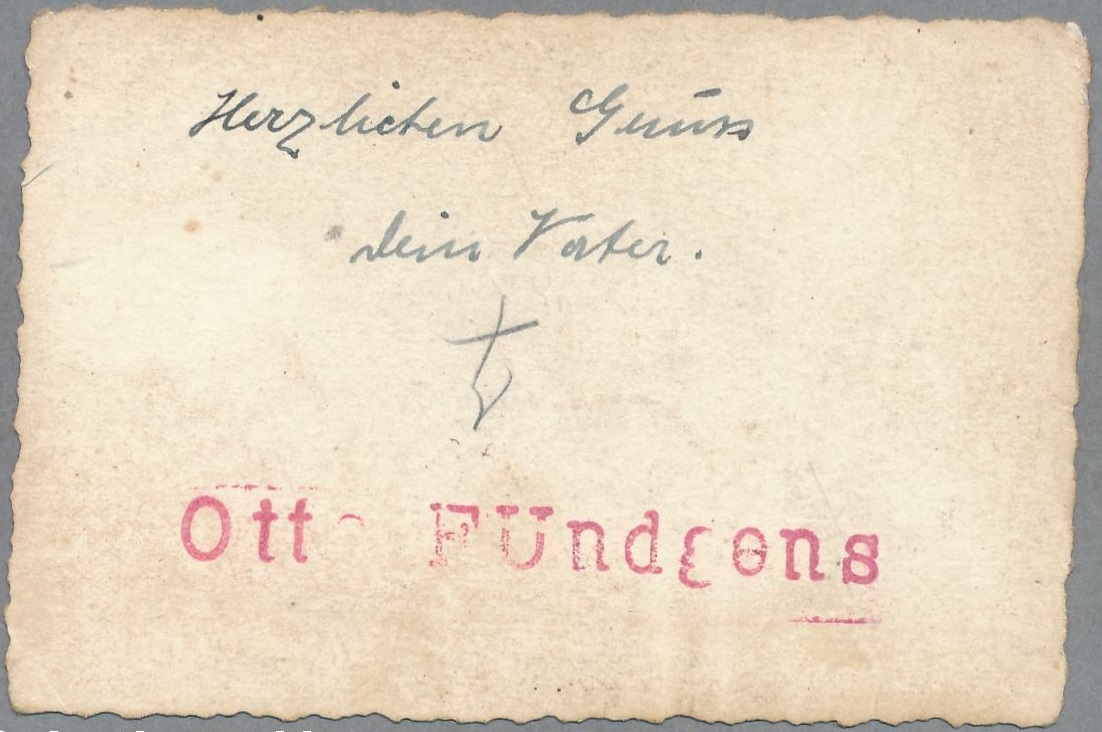 Herzlichen Gruss
Dein Vater.
Otto FUndgens